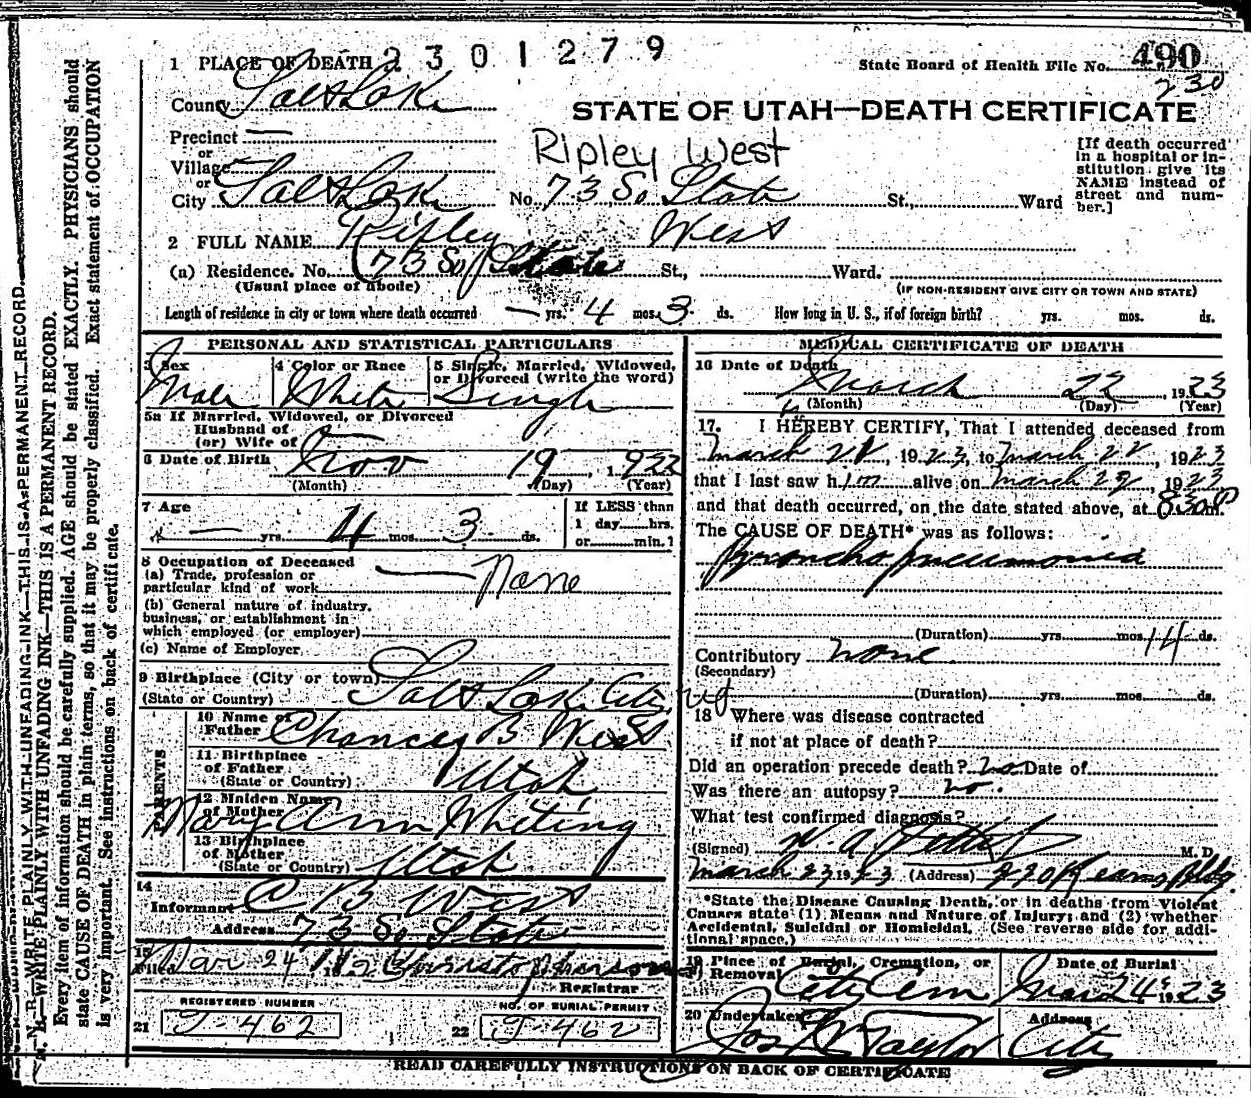 2301279
490
230
1 PLACE OF DEATH
State Board of Health File No.
County Salt Lake
STATE OF UTAH—DEATH CERTIFICATE
Precinct —
or
Village
or
City Salt Lake
Ripley West
No. 73 So State St., Ward
[If death occurred
in a hospital or in-
stitution give its
NAME instead of
street and num-
ber.]
2 FULL NAME Ripley West
(a) Residence. No. 73 So State St., Ward.
(Usual place of abode)
(IF NON-RESIDENT GIVE CITY OR TOWN AND STATE)
Length of residence in city or town where death occurred — yrs. 4 mos. 3 ds. How long in U. S., if of foreign birth? yrs. mos. ds.
PERSONAL AND STATISTICAL PARTICULARS
3 Sex
Male
4 Color or Race
White
5 Single, Married, Widowed,
or Divorced (write the word)
Single
5a If Married, Widowed, or Divorced
Husband of
(or) Wife of
6 Date of Birth Nov 19, 1922
(Month) (Day) (Year)
7 Age
— yrs. 4 mos. 3 ds.
If LESS than
1 day hrs.
or min.?
8 Occupation of Deceased
(a) Trade, profession or
particular kind of work — None
(b) General nature of industry,
business, or establishment in
which employed (or employer)
(c) Name of Employer
9 Birthplace (City or town) Salt Lake City
(State or Country)
PARENTS
10 Name of
Father Chancey B. West
11 Birthplace
of Father
(State or Country) Utah
12 Maiden Name
of Mother
Mary Ann Whiting
13 Birthplace
of Mother
(State or Country) Utah
14
Informant C B West
Address 73 So State
15
Filed Mar 24
Registrar
REGISTERED NUMBER
21 T-462
NO. OF BURIAL PERMIT
22 T-462
MEDICAL CERTIFICATE OF DEATH
16 Date of Death
March 22, 1923
(Month) (Day) (Year)
17. I HEREBY CERTIFY, That I attended deceased from
March 21, 1923, to March 22, 1923
that I last saw him alive on March 22, 1923
and that death occurred, on the date stated above, at 830 P m.
The CAUSE OF DEATH* was as follows:
Broncho pneumonia
(Duration) yrs. mos. 14 ds.
Contributory none
(Secondary)
(Duration) yrs. mos. ds.
18 Where was disease contracted
if not at place of death?
Did an operation precede death? no Date of
Was there an autopsy? no.
What test confirmed diagnosis?
(Signed) M. D.
March 23 1923 (Address) 220 Kearns Bldg.
*State the Disease Causing Death, or in deaths from Violent
Causes state (1) Means and Nature of Injury; and (2) whether
Accidental, Suicidal or Homicidal. (See reverse side for addi-
tional space.)
19 Place of Burial, Cremation, or
Removal
City Cem
Date of Burial
Mar 24 1923
20 Undertaker
Jos Wm Taylor
Address
City
READ CAREFULLY INSTRUCTIONS ON BACK OF CERTIFICATE
WRITE PLAINLY WITH UNFADING INK—THIS IS A PERMANENT RECORD.
N. B.—WRITE PLAINLY WITH UNFADING INK—THIS IS A PERMANENT RECORD.
Every item of information should be carefully supplied. AGE should be stated EXACTLY. PHYSICIANS should
state CAUSE OF DEATH in plain terms, so that it may be properly classified. Exact statement of OCCUPATION
is very important. See instructions on back of certificate.